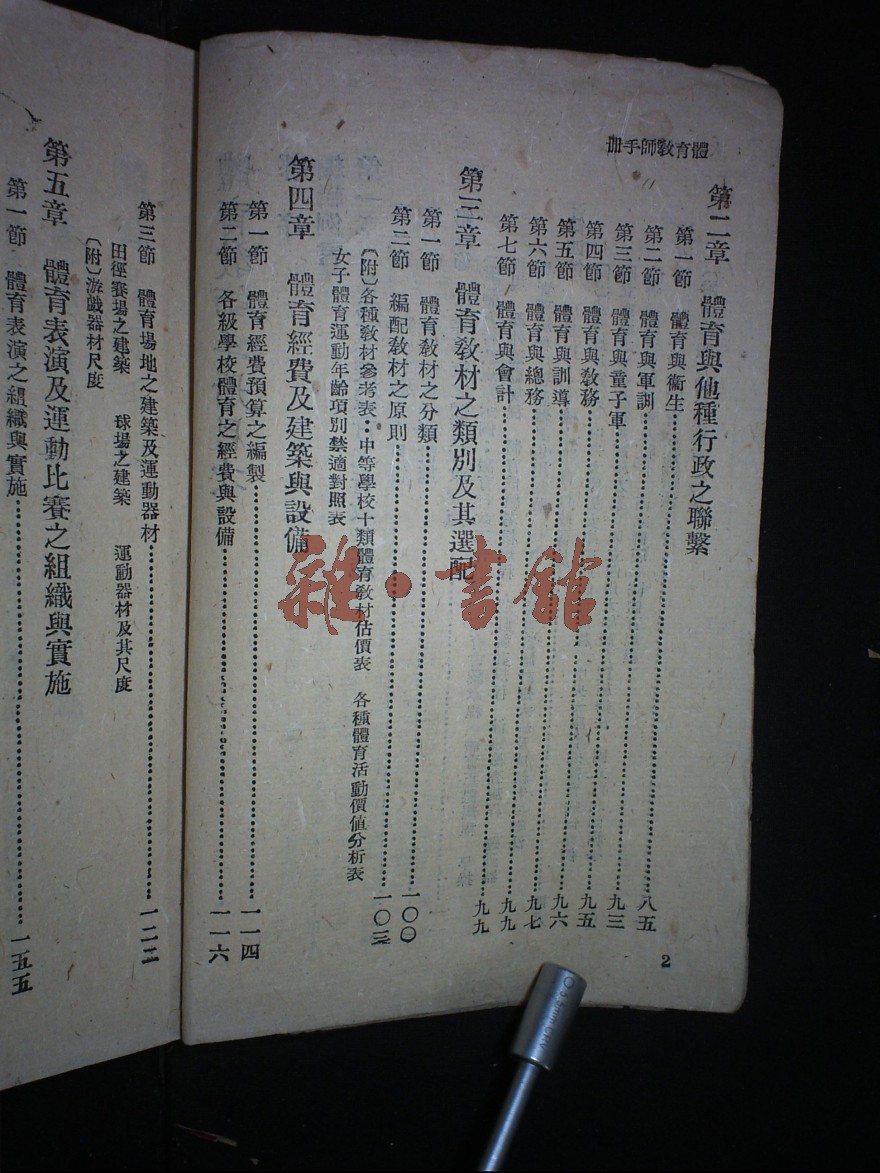 體育教師手冊
第二章　體育與他種行政之聯繫
第一節　體育與衞生……八五
第二節　體育與軍訓……九三
第三節　體育與童子軍……九五
第四節　體育與敎務……九六
第五節　體育與訓導……九七
第六節　體育與總務……九九
第七節　體育與會計……九九
第三章　體育敎材之類別及其選配
第一節　體育敎材之分類……一〇〇
第二節　編配敎材之原則……一〇三
〔附〕各種敎材參考表：中等學校十類體育敎材估價表　各種體育活動價値分析表
女子體育運動年齡項別禁適對照表
第四章　體育經費及建築與設備
第一節　體育經費預算之編製……一一四
第二節　各級學校體育之經費與設備……一一六
2
第三節　體育場地之建築及運動器材……一二二
田徑賽場之建築　球場之建築　運動器材及其尺度
〔附〕游戲器材尺度
第五章　體育表演及運動比賽之組織與實施
第一節　體育表演之組織與實施……一五五
雜·書館